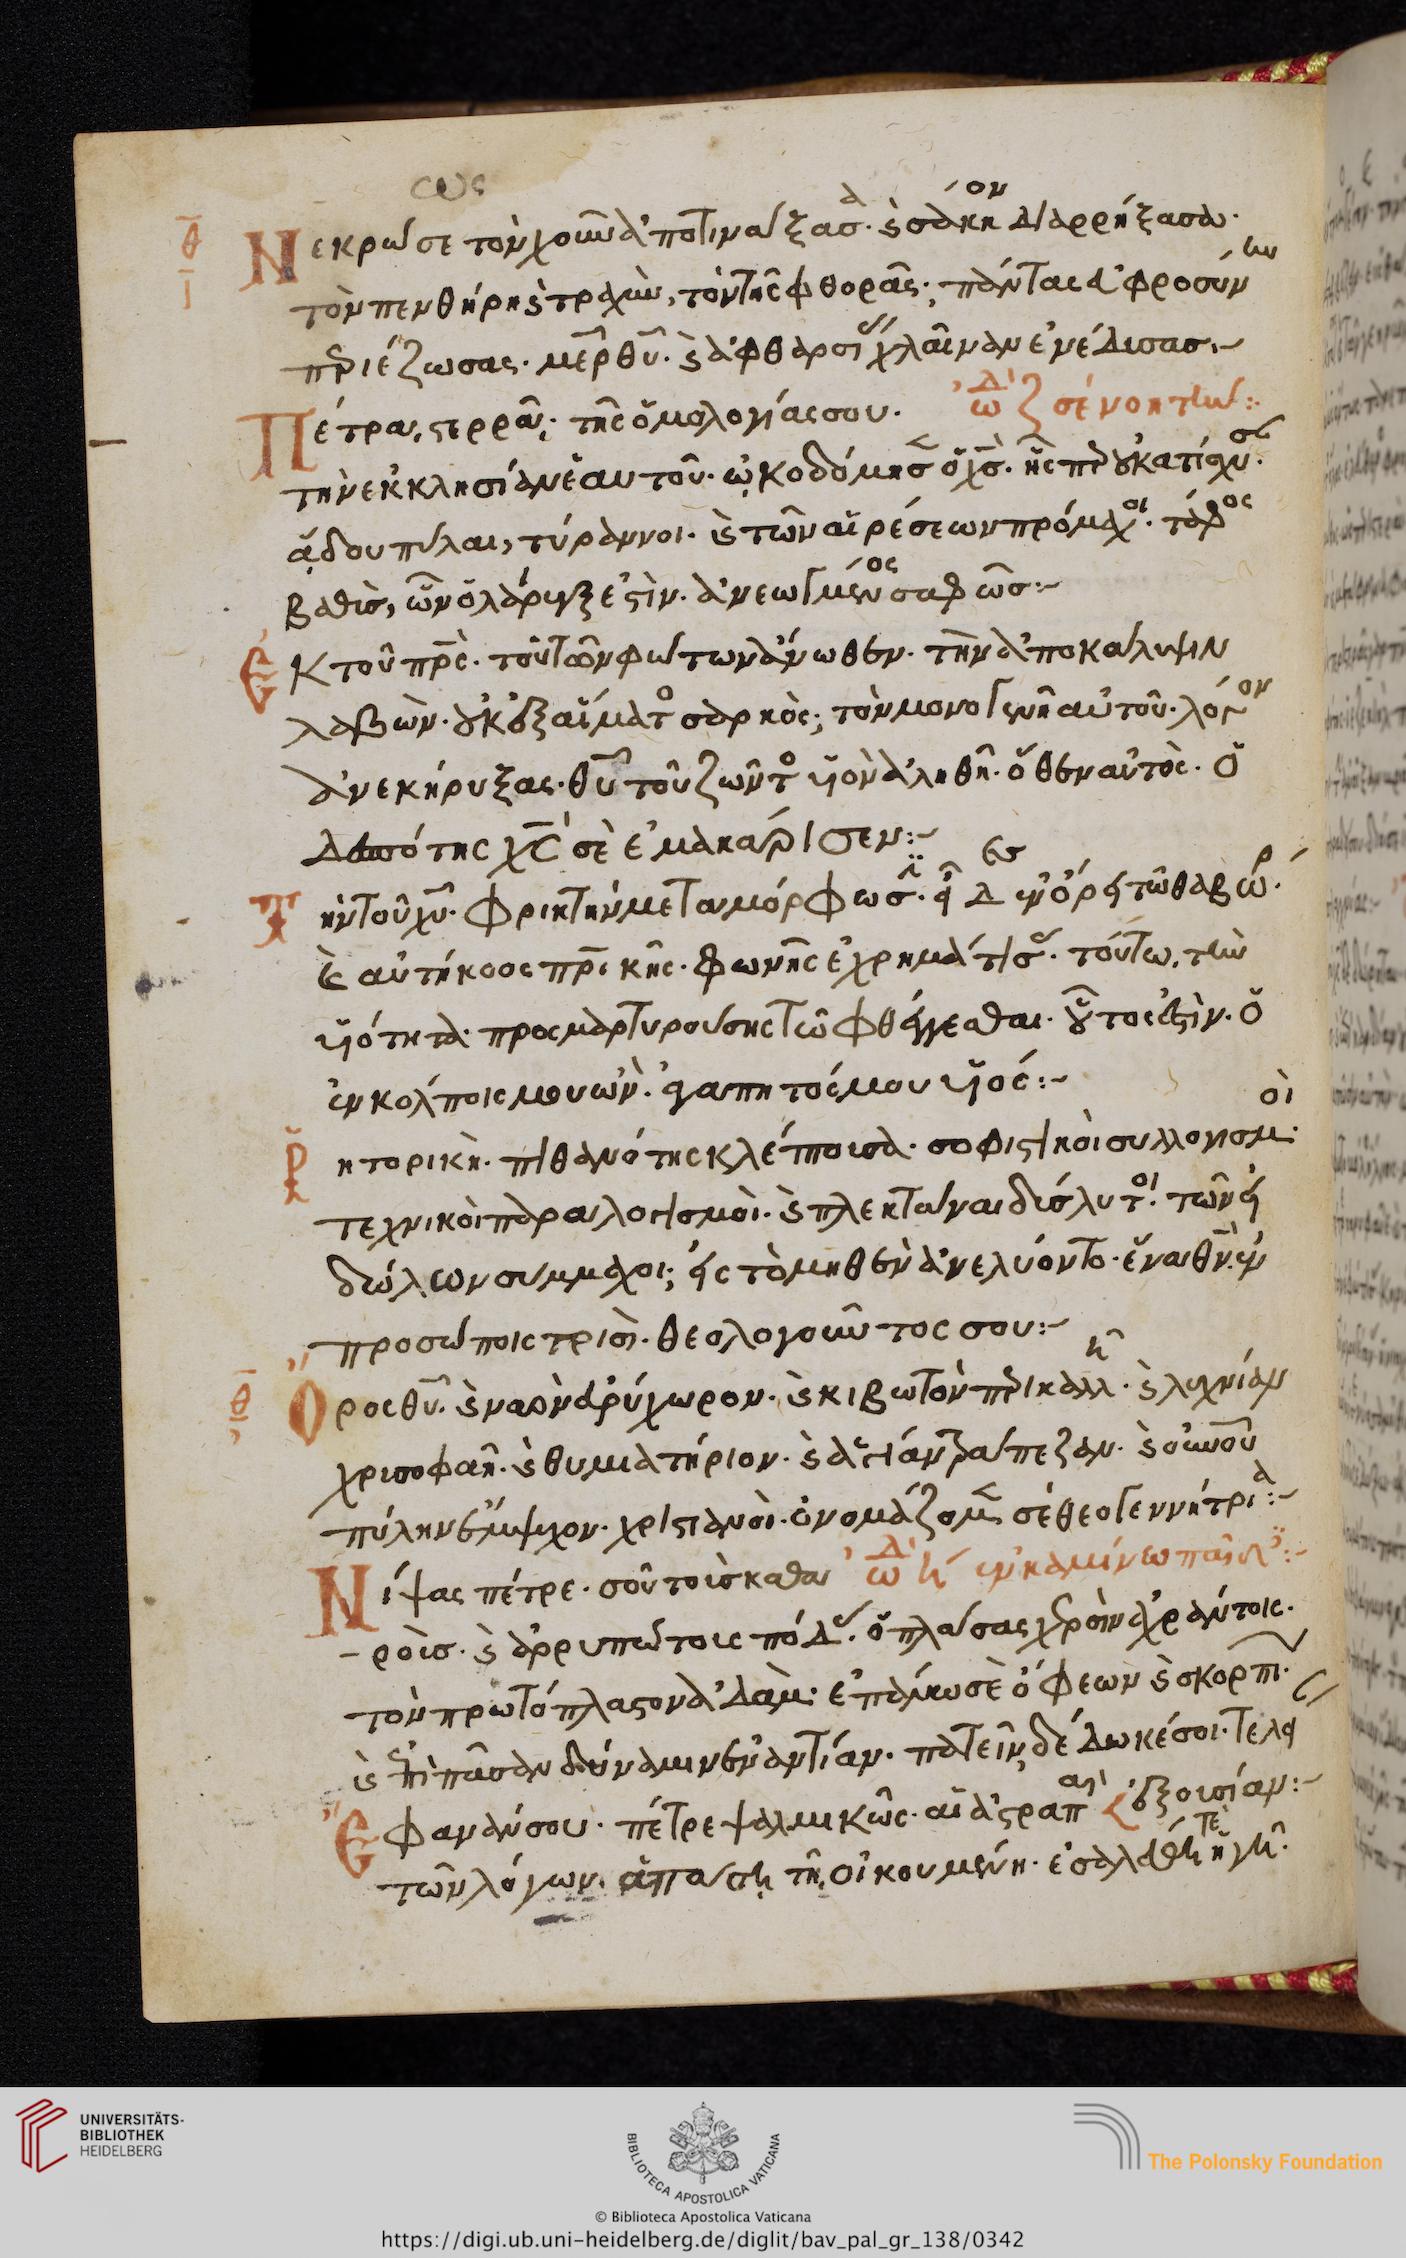 Νεκρώσεως τὸν χοῦν ἀποτιναξασα. καὶ σάκκον διαρρήξασα.
τὸν πενθήρη καὶ τραχὺν, τὸν τῆς φθορᾶς· πάντας εὐφροσύνην
περιέζωσας. μῆρ θῦ. καὶ ἀφθαρσίας χλαῖναν ἐνέδυσας.
Πέτραν, στερρὰν· τῆς ὁμολογίας σου. ᾠδ ζ σὲ νοητὴν:
τὴν ἐκκλησίαν ἑαυτοῦ. ᾠκοδόμησεν ὁ χς. ἧς περ οὐ κατίσχυσαν.
ᾅδου πύλαι, τύραννοι. καὶ τῶν αἱρέσεων πρόμαχοι. τάφος
βαθὺς, ὧν ὁ λάρυγξ ἐστὶν. ἀνεωγμένος σαφῶς:
Ἐκ τοῦ πρς. τοῦ τῶν φώτων ἄνωθεν. τὴν ἀποκάλυψιν
λαβὼν. οὐκ ἐξ αἵματος σαρκὸς· τὸν μονογενῆ αὐτοῦ. λόγον
ἀνεκήρυξας. θῦ τοῦ ζῶντος υἱὸν ἀληθῆ. ὅθεν αὐτὸς. ὁ
δεσπότης χς σὲ ἐμακάρισεν:
Τὴν τοῦ χυ. φρικτὴν μεταμόρφωσιν. εἶδες ἐν ὄρει τῷ θαβώρ.
καὶ αὐτήκοος πρικῆς. φωνῆς ἐχρημάτισας. τούτω, τὴν
υἱότητα. προσμαρτυρούσης τῷ φθέγγεσθαι. οὗτος ἐστὶν. ὁ
ἐν κόλποις μου ὢν. ἀγαπητός μου υἱός:
Ῥητορικὴ. πιθανότης κλέπτουσα. σοφιστικοὶ συλλογισμοὶ.
τεχνικοὶ παραλογισμοὶ. καὶ πλεκτάναι δύσλυτοι. τῶν εἰ
δώλων σύμμαχοι· εἰς τὸ μηθὲν ἀνελύοντο. ἕνα θν ἐν
προσώποις τρισὶ. θεολογοῦντος σου:
Ὄρος θῦ. καὶ ναὸν εὐρύχωρον. καὶ κιβωτὸν περικαλλῆ. καὶ λυχνίαν
χρυσοφαῆ. καὶ θυμιατήριον. καὶ ἁγίαν τράπεζαν. καὶ οὐνοῦ
πύλην ἔμψυχον. χριστιανοὶ. ὀνομάζομεν σὲ θεογεννήτρια:
Νίψας πέτρε. σοῦ τοὺς καθα ᾠδ η ἐν καμίνω παῖδες:
ροὺς. καὶ ἀρρυπώτοις πόδας. ὁ πλάσας χερσὶν ἀχράντοις.
τὸν πρωτόπλαστον ἀδάμ· ἐπάνω σὲ ὄφεων καὶ σκορπίων.
καὶ ἐπὶ πᾶσαν δύναμιν ἐναντίαν. πατεῖν δέδωκέ σοι. τελεί
Ἔφαναν σου. πέτρε ψαλμικῶς. αἱ ἀστραπαὶ αν ἐξουσίαν:
τῶν λόγων. ἁπάσῃ τῇ οἰκουμένη. ἐσαλεύθη τὲ ἡ γῆ.
UNIVERSITÄTS-
BIBLIOTHEK
HEIDELBERG
BIBLIOTECA APOSTOLICA VATICANA
The Polonsky Foundation
© Biblioteca Apostolica Vaticana
https://digi.ub.uni-heidelberg.de/diglit/bav_pal_gr_138/0342